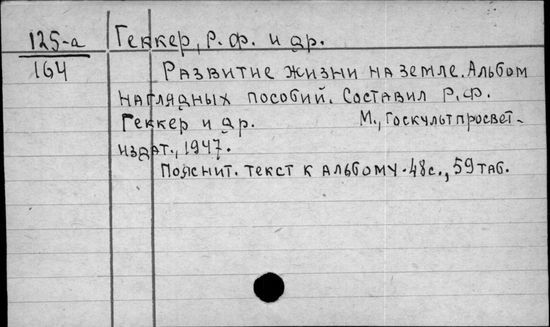 125-а Геккер, Р. Ф. и др.
164 Развитие жизни на земле. Альбом
наглядных пособий. Составил Р. Ф.
Геккер и др. М., Госкультпросвет-
издат., 1947.
Пояснит. текст к альбому. 48с., 59 таб.